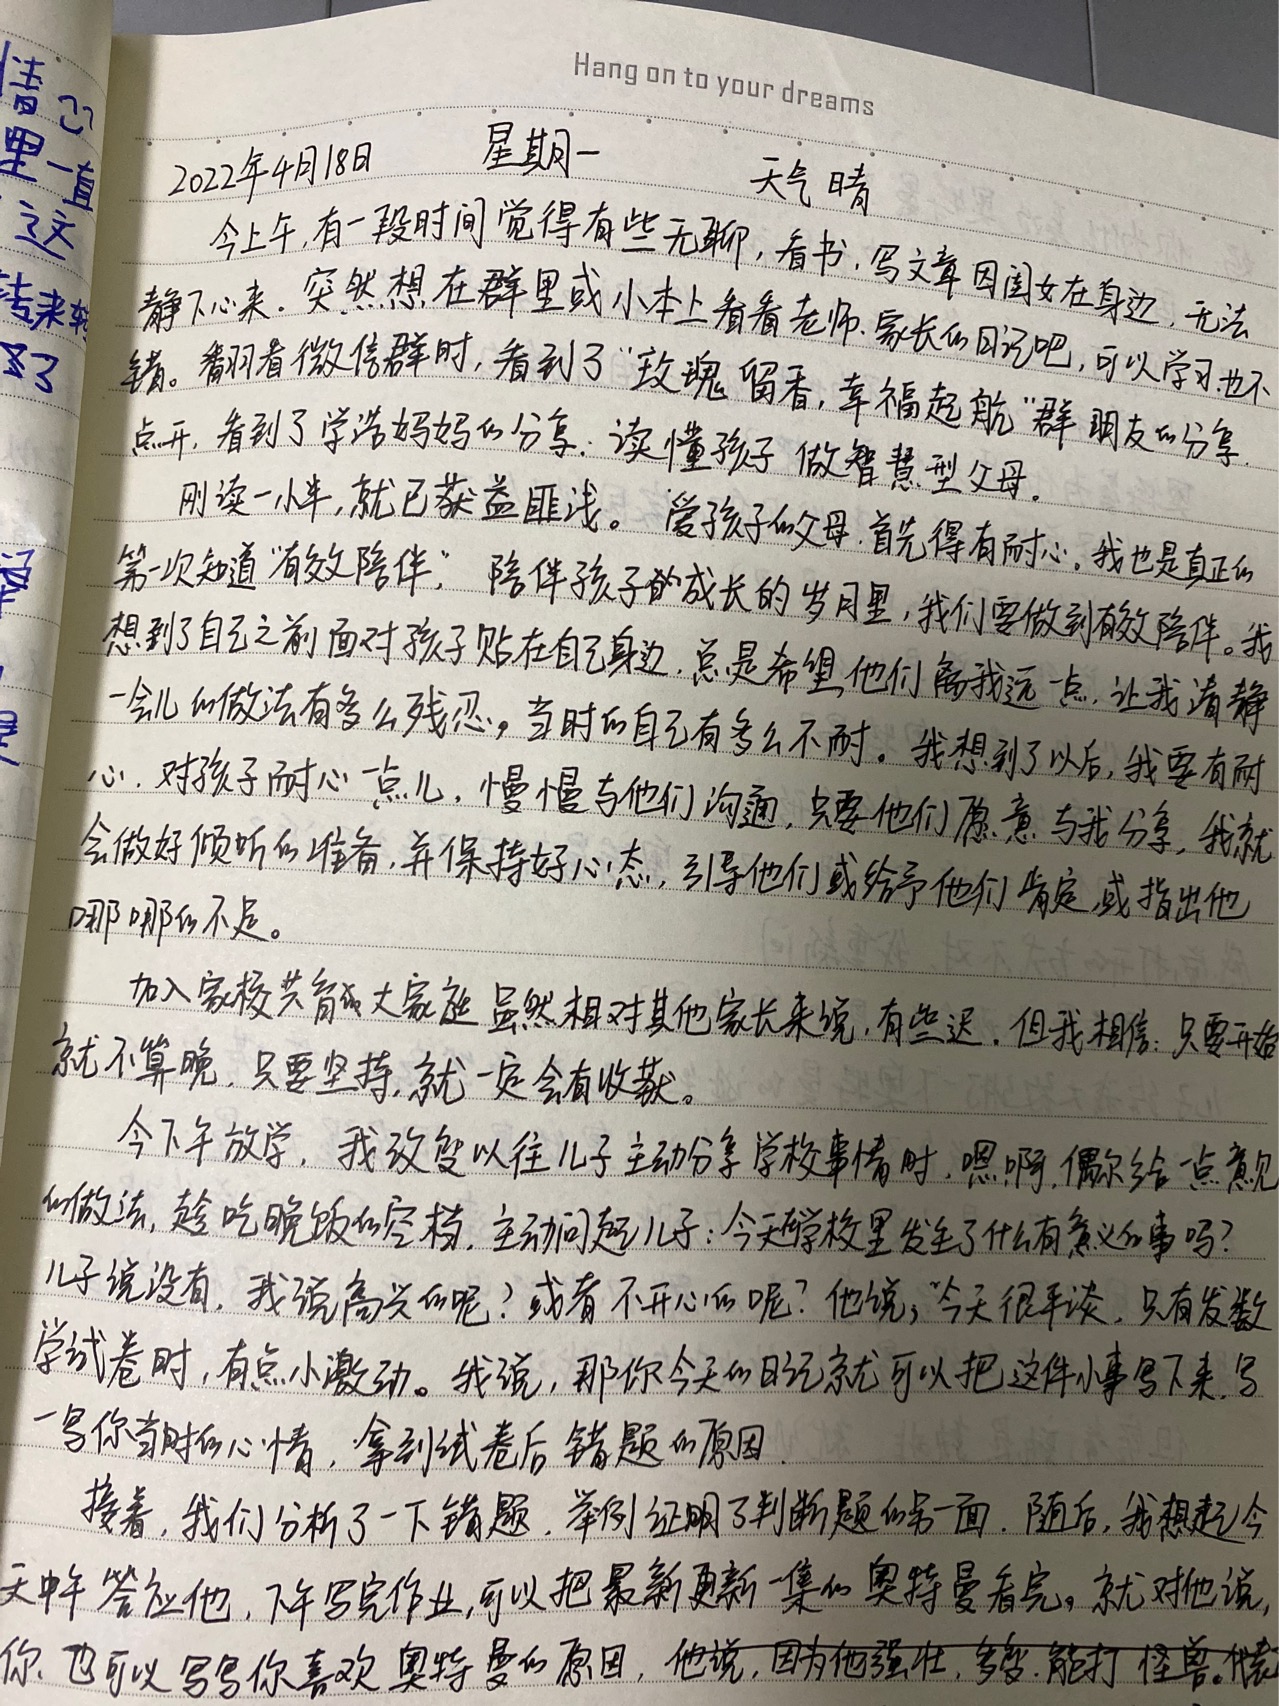 Hang on to your dreams
2022年4月18日 星期一 天气晴
今上午,有一段时间觉得有些无聊,看书,写文章因闺女在身边,无法
静下心来。突然想在群里或小本上看看老师、家长的日记吧,可以学习,也不
错。翻看微信群时,看到了“玫瑰留香,幸福起航”群朋友的分享.
点开,看到了学浩妈妈的分享:读懂孩子 做智慧型父母.
刚读一小半,就已获益匪浅。爱孩子的父母,首先得有耐心。我也是真正的
第一次知道“有效陪伴”,陪伴孩子的成长的岁月里,我们要做到有效陪伴。我
想到了自己之前面对孩子贴在自己身边,总是希望他们离我远一点,让我清静
一会儿的做法有多么残忍。当时的自己有多么不耐。我想到了以后,我要有耐
心,对孩子耐心一点儿,慢慢与他们沟通,只要他们愿意与我分享,我就
会做好倾听的准备,并保持好心态,引导他们或给予他们肯定,或指出他
哪哪的不足。
加入家校共育的大家庭虽然相对其他家长来说,有些迟,但我相信:只要开始
就不算晚,只要坚持,就一定会有收获。
今下午放学,我改变以往儿子主动分享学校事情时,嗯啊,偶尔给一点意见
的做法,趁吃晚饭的空档,主动问起儿子:今天在学校里发生了什么有意义的事吗?
儿子说没有,我说高兴的呢?或者不开心的呢?他说,“今天很平淡,只有发数
学试卷时,有点小激动。我说,那你今天的日记就可以把这件小事写下来,写
一写你当时的心情,拿到试卷后错题的原因.
接着,我们分析了一下错题,举例证明了判断题的另一面.随后,我想起今
天中午答应他,下午写完作业,可以把最新更新一集的奥特曼看完。就对他说,
你也可以写写你喜欢奥特曼的原因,他说,因为他强壮,多变,能打怪兽。
情心
里一直
这
转来转